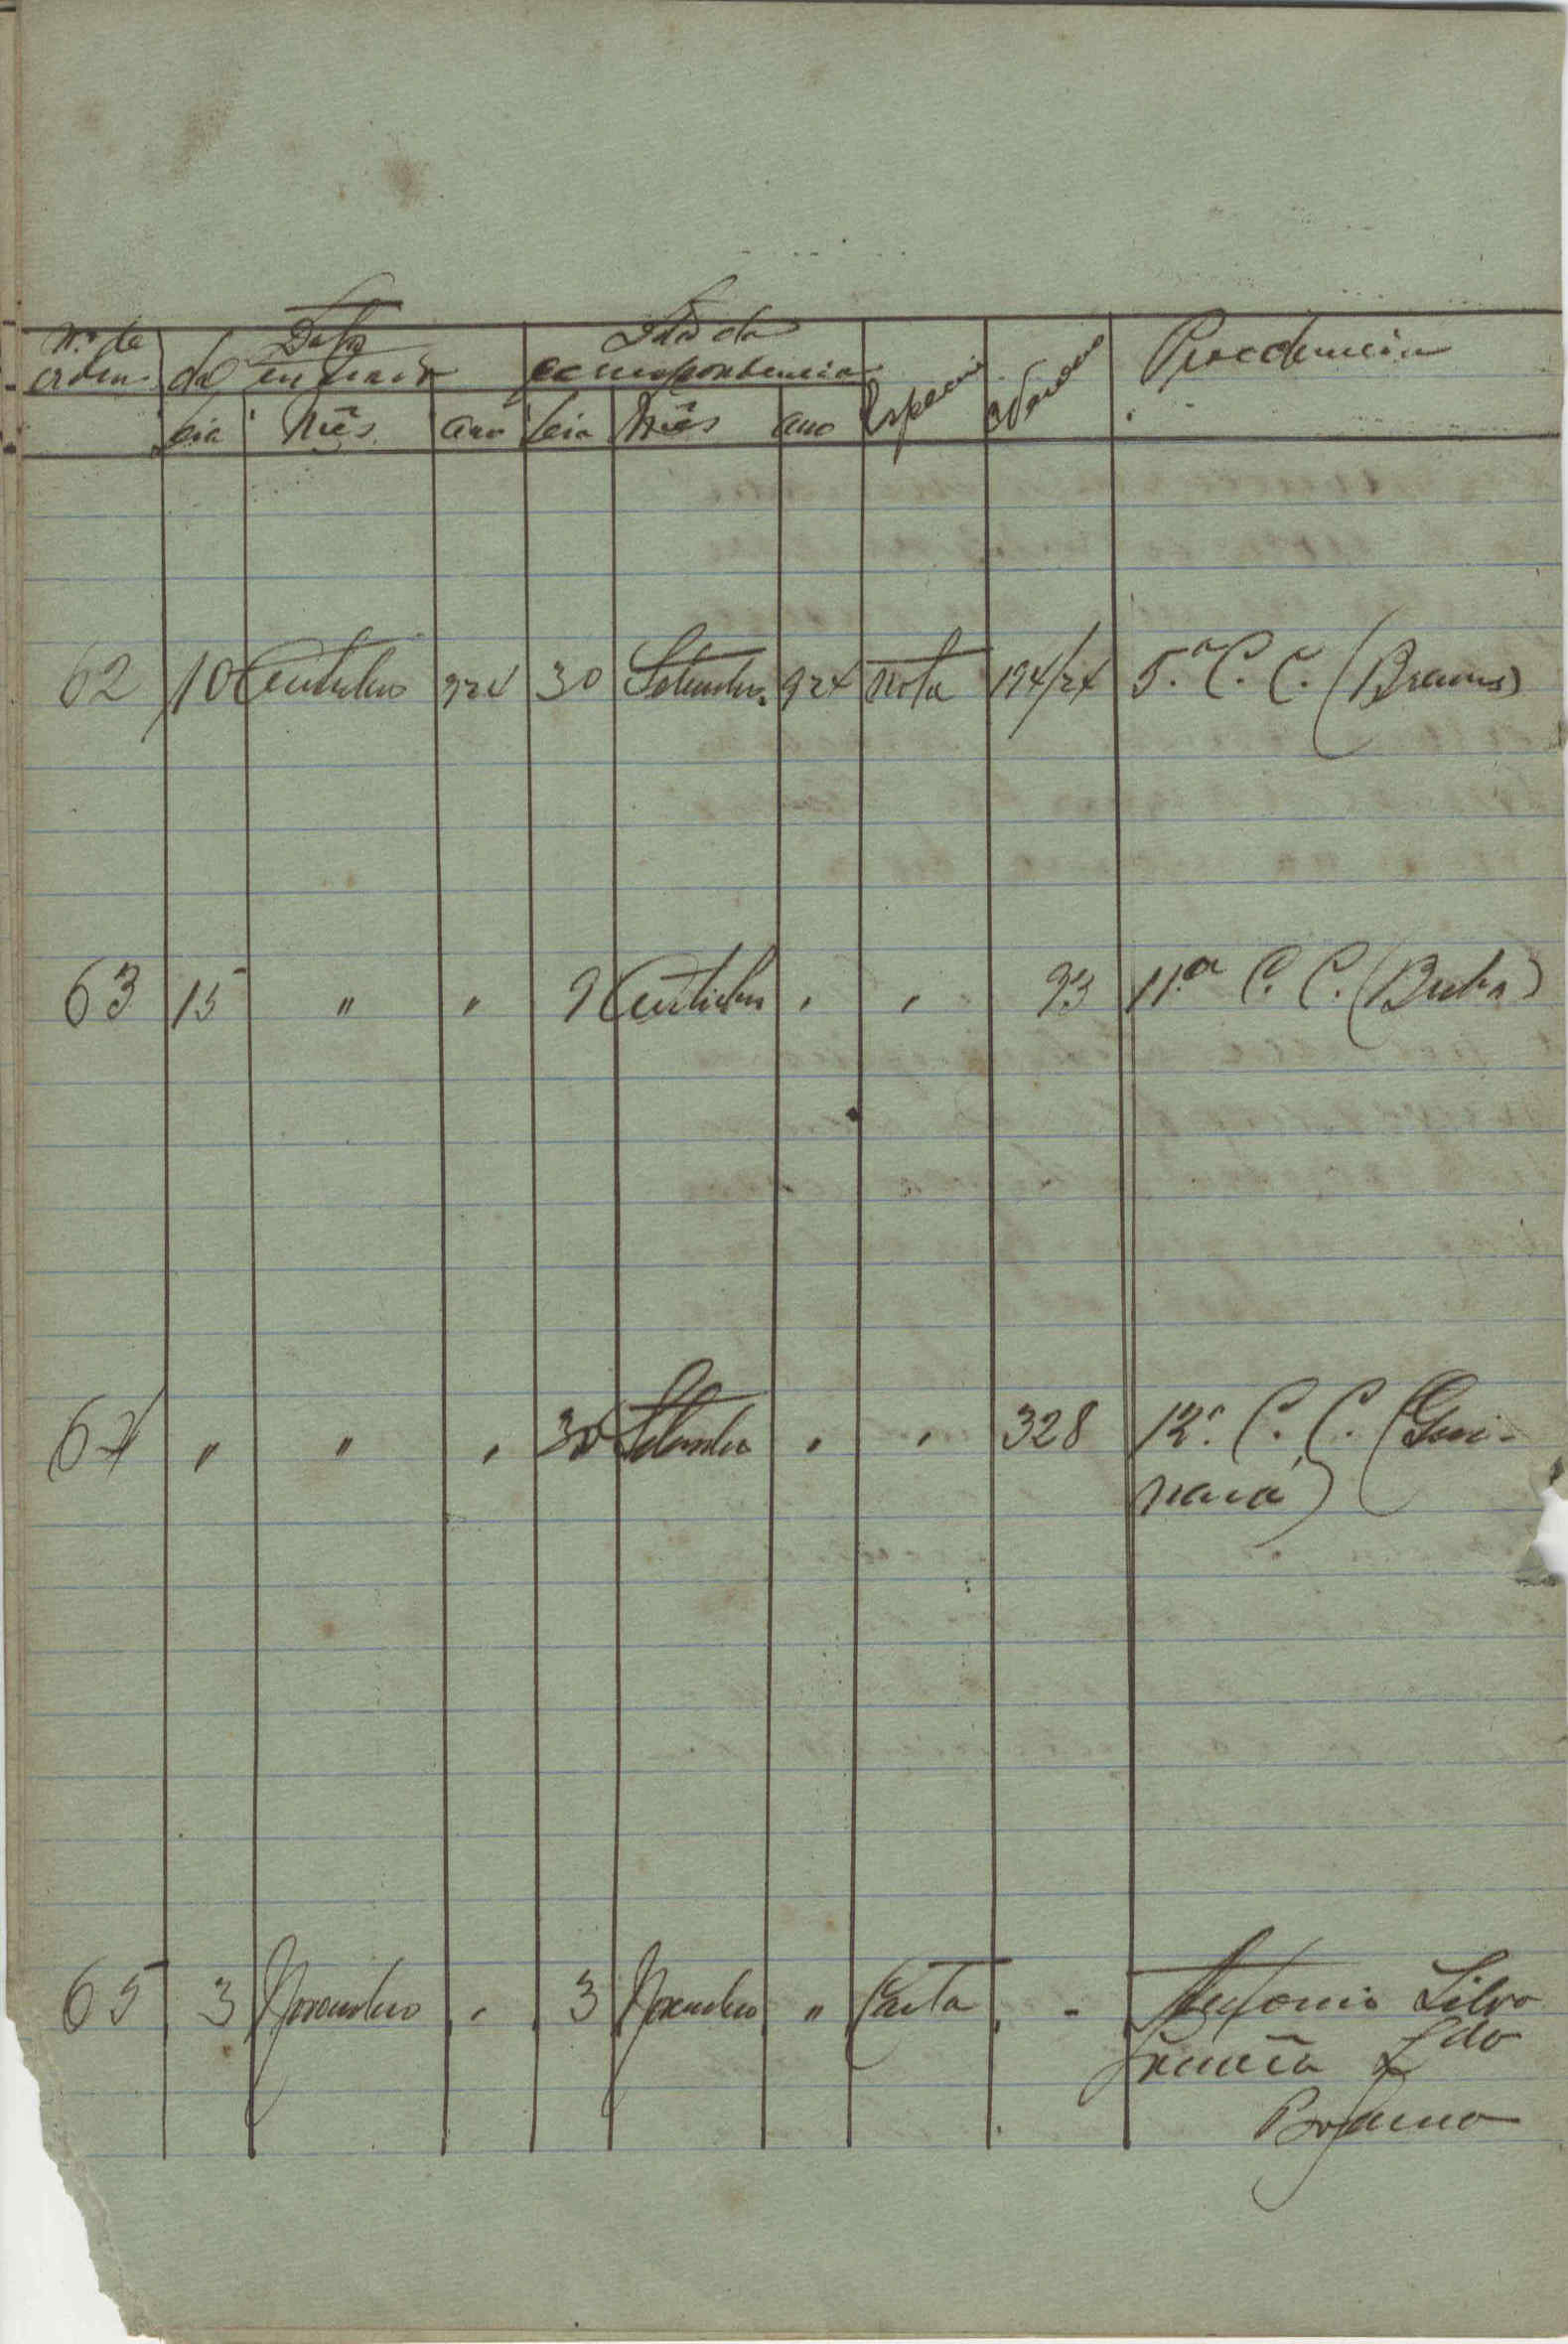 N.º de ordem Data da entrada Data da correspondencia Especie Numero Procedencia
Dia Mês Ano Dia Mês Ano
62 10 Outubro 924 30 Setembro 924 Nota 194/24 5.ª C. C. (Brames)
63 15 " " 9 Outubro " " 93 11.ª C. C. (Buba)
64 " " " 30 Setembro " " 328 12.ª C. C. (Gui-
nara)
65 3 Novembro " 3 Novembro " Carta - Antonio Silva
L.do
Bolama